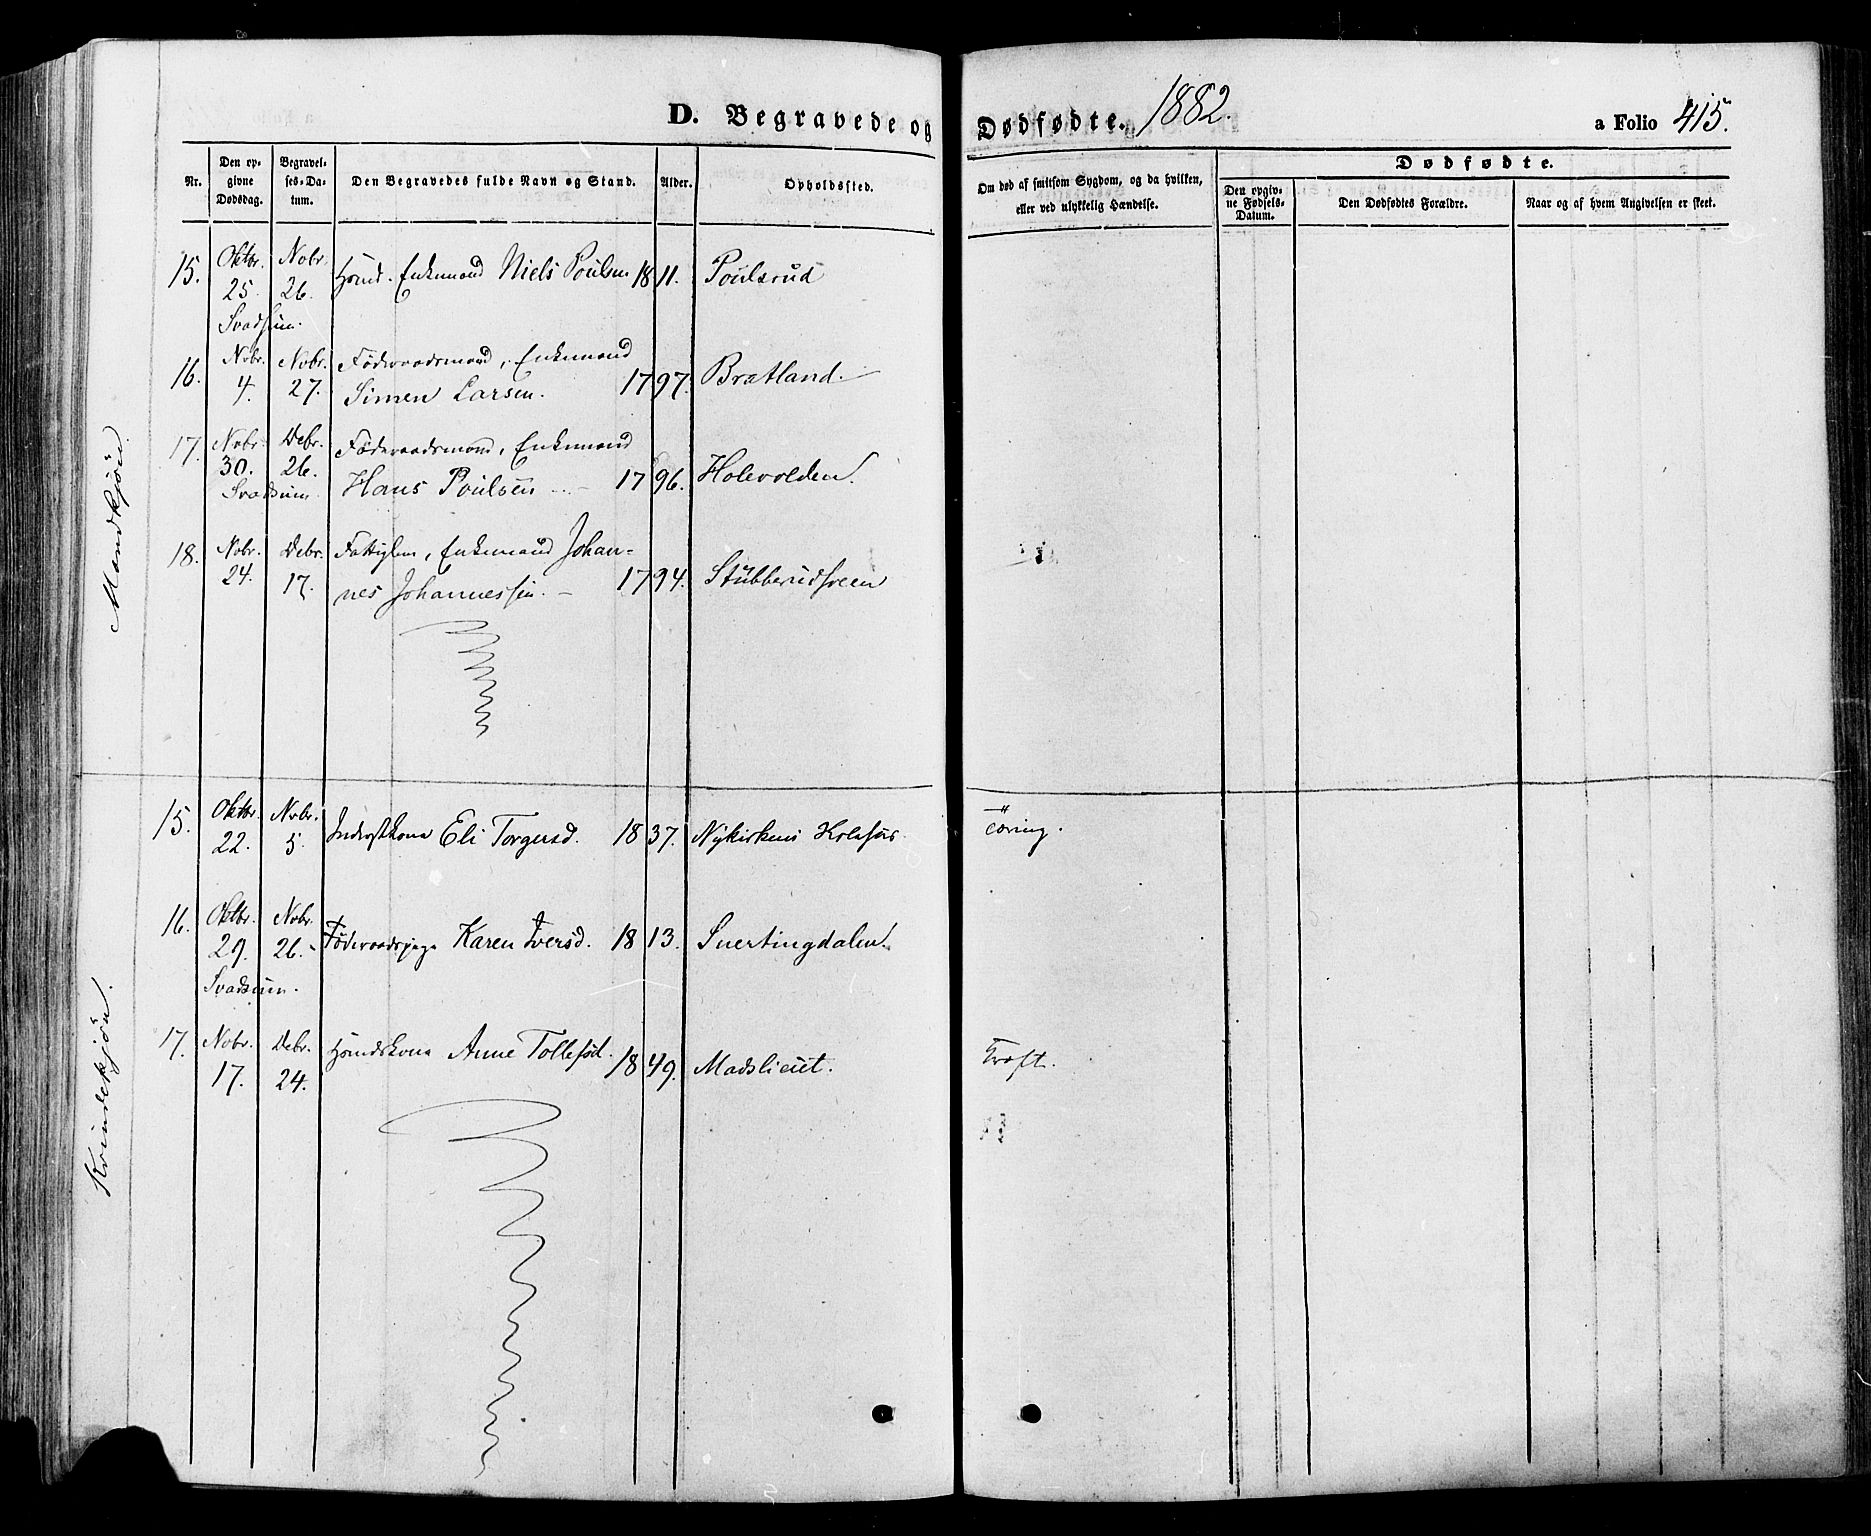 D. Begravede og Dødfødte. 1882. a Folio 415.
Nr. Den opgivne Dødsdag. Begravelses-Datum. Den Begravedes fulde Navn og Stand. Alder. Opholdssted. Om død af smitsom Sygdom, og da hvilken, eller ved ulykkelig Hændelse.
Dødfødte.
Den opgivne Fødsels-Datum. Den Dødfødtes Forældre. Naar og af hvem Angivelsen er skeet.
Mandkjön.
15. Oktbr. 25. Nobr. 26. Enkemand Niels Poulsen 1811. Poulsrud
Svadsum.
16. Nobr. 4. Nobr. 27. Föderaadsmand, Enkemand
Simen Larsen. 1797. Bratland.
17. Nobr. 30. Debr. 26. Föderaadsmand, Enkemand
Svadsum Hans Poulsen 1796. Holevolden.
18. Nobr. 24. Debr. 17. Fattiglem, Enkemand Johan-
nes Johannessen. 1794. Stubberudsveen
Kvindekjön.
15. Oktbr. 22. Nobr. 5. Inderstkona Eli Torgersd. 1837. Nykirkens Tæring.
16. Oktbr. 29. Nobr. 26. Karen Iversd. 1813. Snertingdalen.
Svadsum.
17. Nobr. 17. Debr. 24. Anne Tollefsd. 1849. Madslieiet.